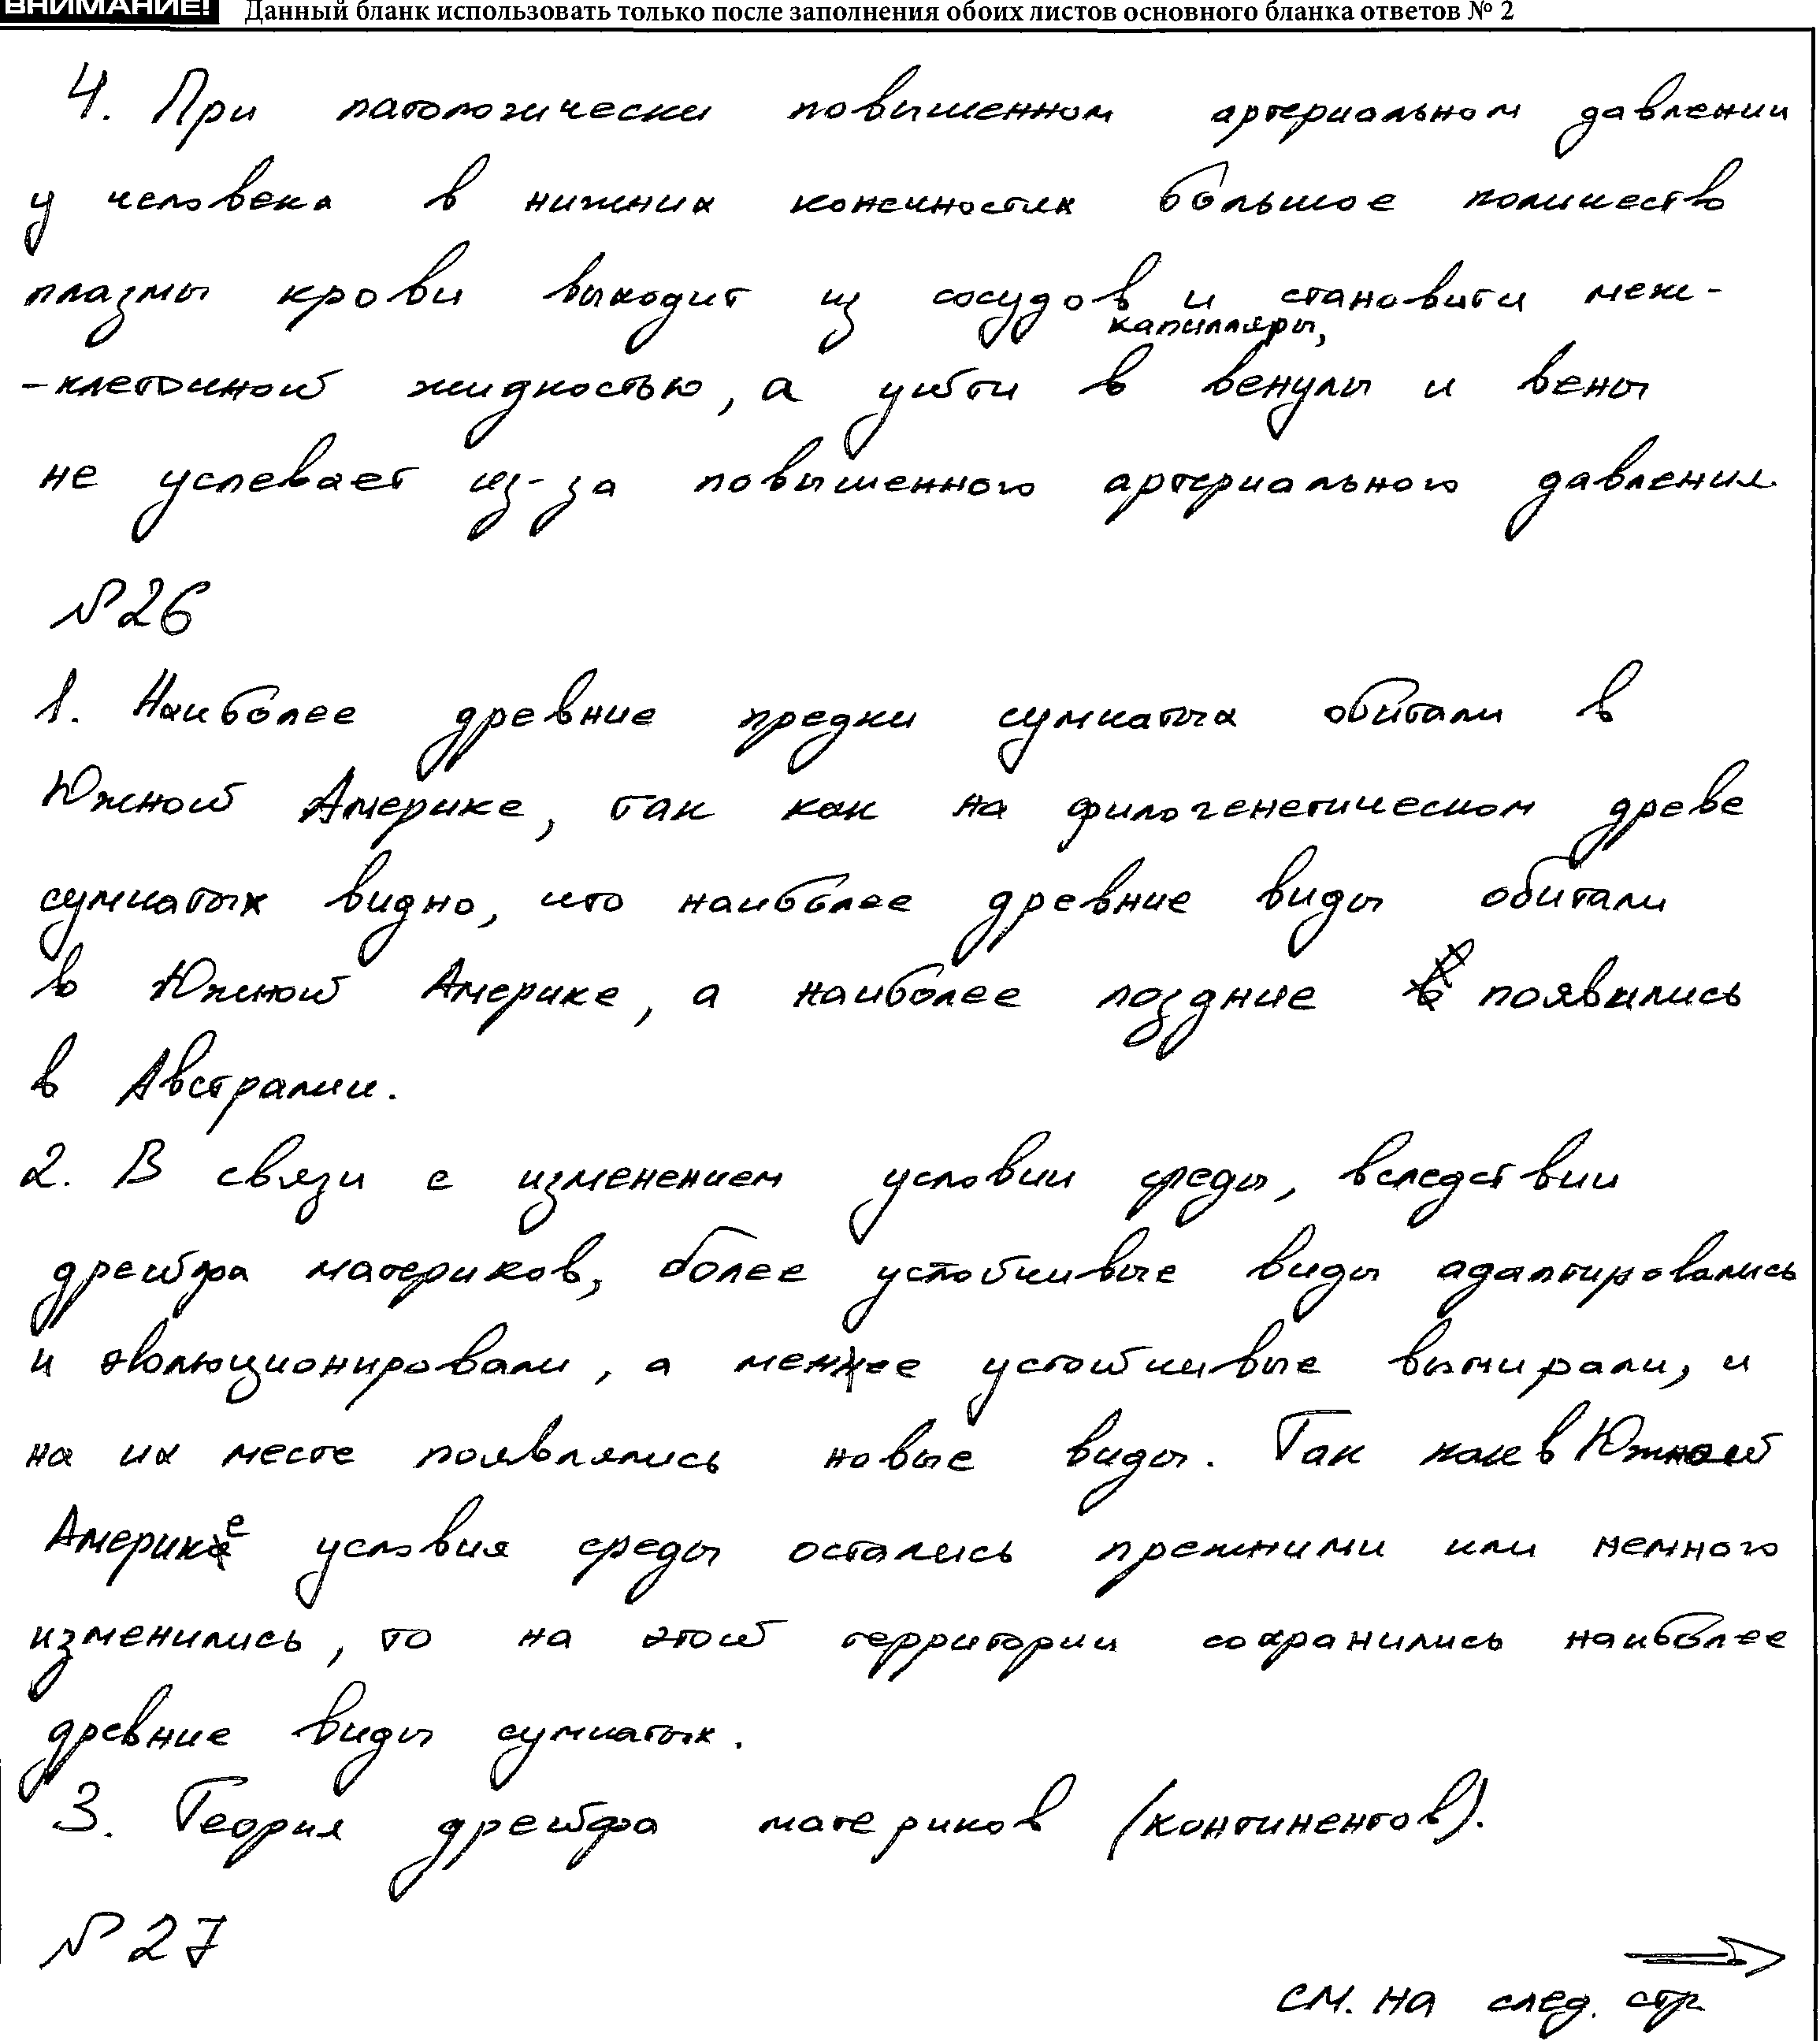 ВНИМАНИЕ! Данный бланк использовать только после заполнения обоих листов основного бланка ответов № 2
4. При патологически повышенном артериальном давлении
у человека в нижних конечностях большое количество
плазмы крови выходит из сосудов и становится меж-
капилляры,
-клеточной жидкостью, а уйти в венулы и вены
не успевает из-за повышенного артериального давления.
№26
1. Наиболее древние предки сумчатых обитали в
Южной Америке, так как на филогенетическом древе
сумчатых видно, что наиболее древние виды обитали
в Южной Америке, а наиболее поздние появились
в Австралии.
2. В связи с изменением условий среды, вследствии
дрейфа материков, более устойчивые виды адаптировались
и эволюционировали, а менее устойчивые вымирали, и
на их месте появлялись новые виды. Так как в Южной
Америке условия среды остались прежними или немного
изменились, то на этой территории сохранились наиболее
древние виды сумчатых.
3. Теория дрейфа материков (континентов).
№27
см. на след. стр